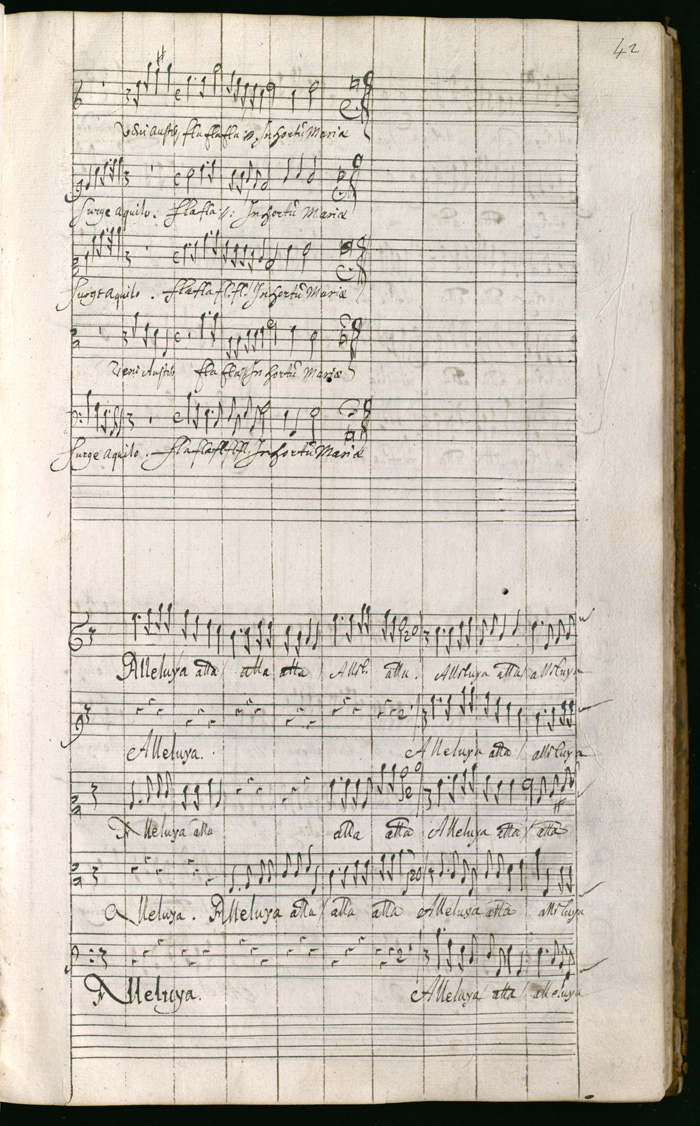 42
Veni Austr. fla fla fla ij. In hortũ Mariæ
Surge aquilo. fla fla ij: In hortũ Mariæ
Surge aquilo. fla fla fl. fl. In hortũ Mariæ
Veni Austr. fla fla ij In hortũ Mariæ
Surge aquilo. fla fla fl. fl. fl. In hortũ Mariæ
Alleluya alla alla alla All. alla. Alleluya alla alleluya
Alleluya. Alleluya alla alleluya
Alleluya alla alla alla Alleluya alla alla
Alleluya. Alleluya alla alla alla Alleluya alla alleluya
Alleluya. Alleluya alla alleluya